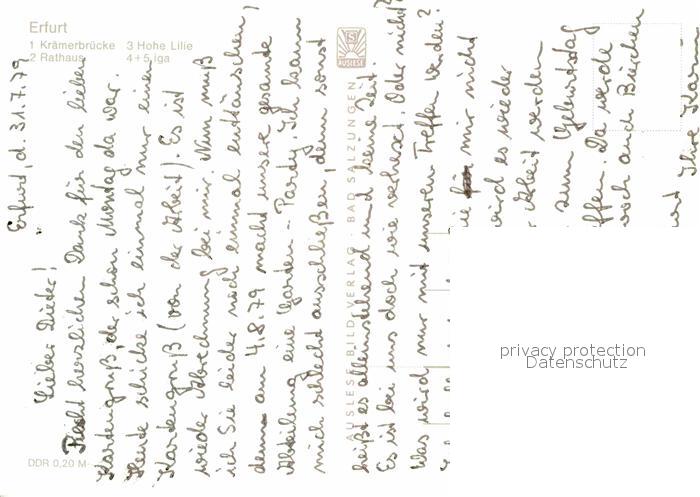 Erfurt
1 Krämerbrücke 3 Hohe Lilie
2 Rathaus 4+5 iga
AUSLESE
AUSLESE-BILD-VERLAG · BAD SALZUNGEN
DDR 0,20 M
privacy protection
Datenschutz
Erfurt, d. 31.7.79
Lieber Dieter!
Recht herzlichen Dank für den lieben
Kartengruß, der schon Montag da war.
Heute schicke ich einmal nur einen
Kartengruß (von der Arbeit). Es ist
wieder Abrechnung bei mir. Nun muß
ich Sie leider noch einmal enttäuschen,
denn am 4.8.79 macht unsere gesamte
Abteilung eine Garten-Party. Ich kann
mich schlecht ausschließen, denn sonst
heißt es alleinstehend und keine Zeit
Es ist bei uns doch wie verhext. Oder nicht?
Was wird nur mit unserem Treffen werden?
mir nicht
wird es wieder
Arbeit werden
zum Geburtstag
Da werde
noch auch Bierchen
Ihre Karin